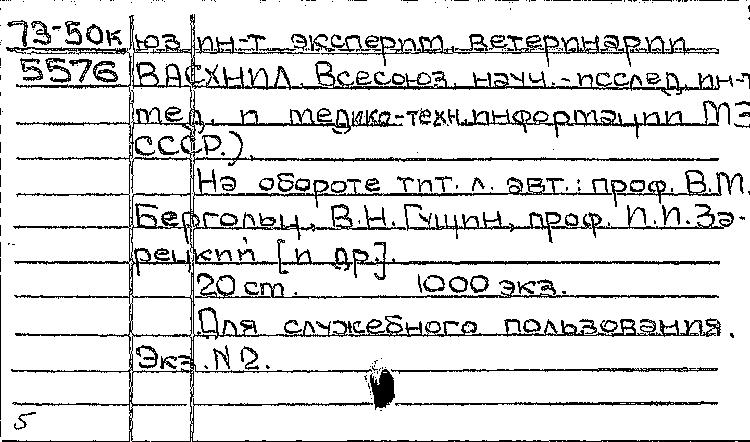 73-50к юз ин-т эксперим. ветеринарии
5576 ВАСХНИЛ. Всесоюз. науч.-исслед. ин-т
мед. и медико-техн. информации МЗ
СССР.).
На обороте тит. л. авт.: проф. В.М.
Бергольц, В.Н. Гущин, проф. И.И. За-
рецкий [и др.].
20 cm. 1000 экз.
Для служебного пользования.
Экз. N 2.
5